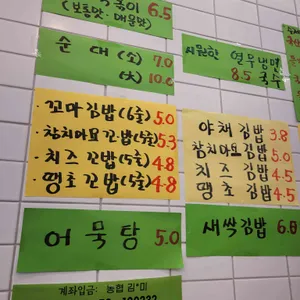 볶이 6.5
(보통맛·매운맛)
순 대 (소) 7.0
(大) 10.0
시원한 열무냉면
8.5 국수
·꼬마김밥(6줄) 5.0
·참치마요꼬밥(5줄) 5.3
·치즈 꼬밥(5줄) 4.8
·땡초 꼬밥(5줄) 4.8
야채 김밥 3.8
참치마요김밥 5.0
치즈 김밥 4.5
땡초 김밥 4.5
어 묵 탕 5.0
새싹김밥 6.8
계좌입금: 농협 김*미